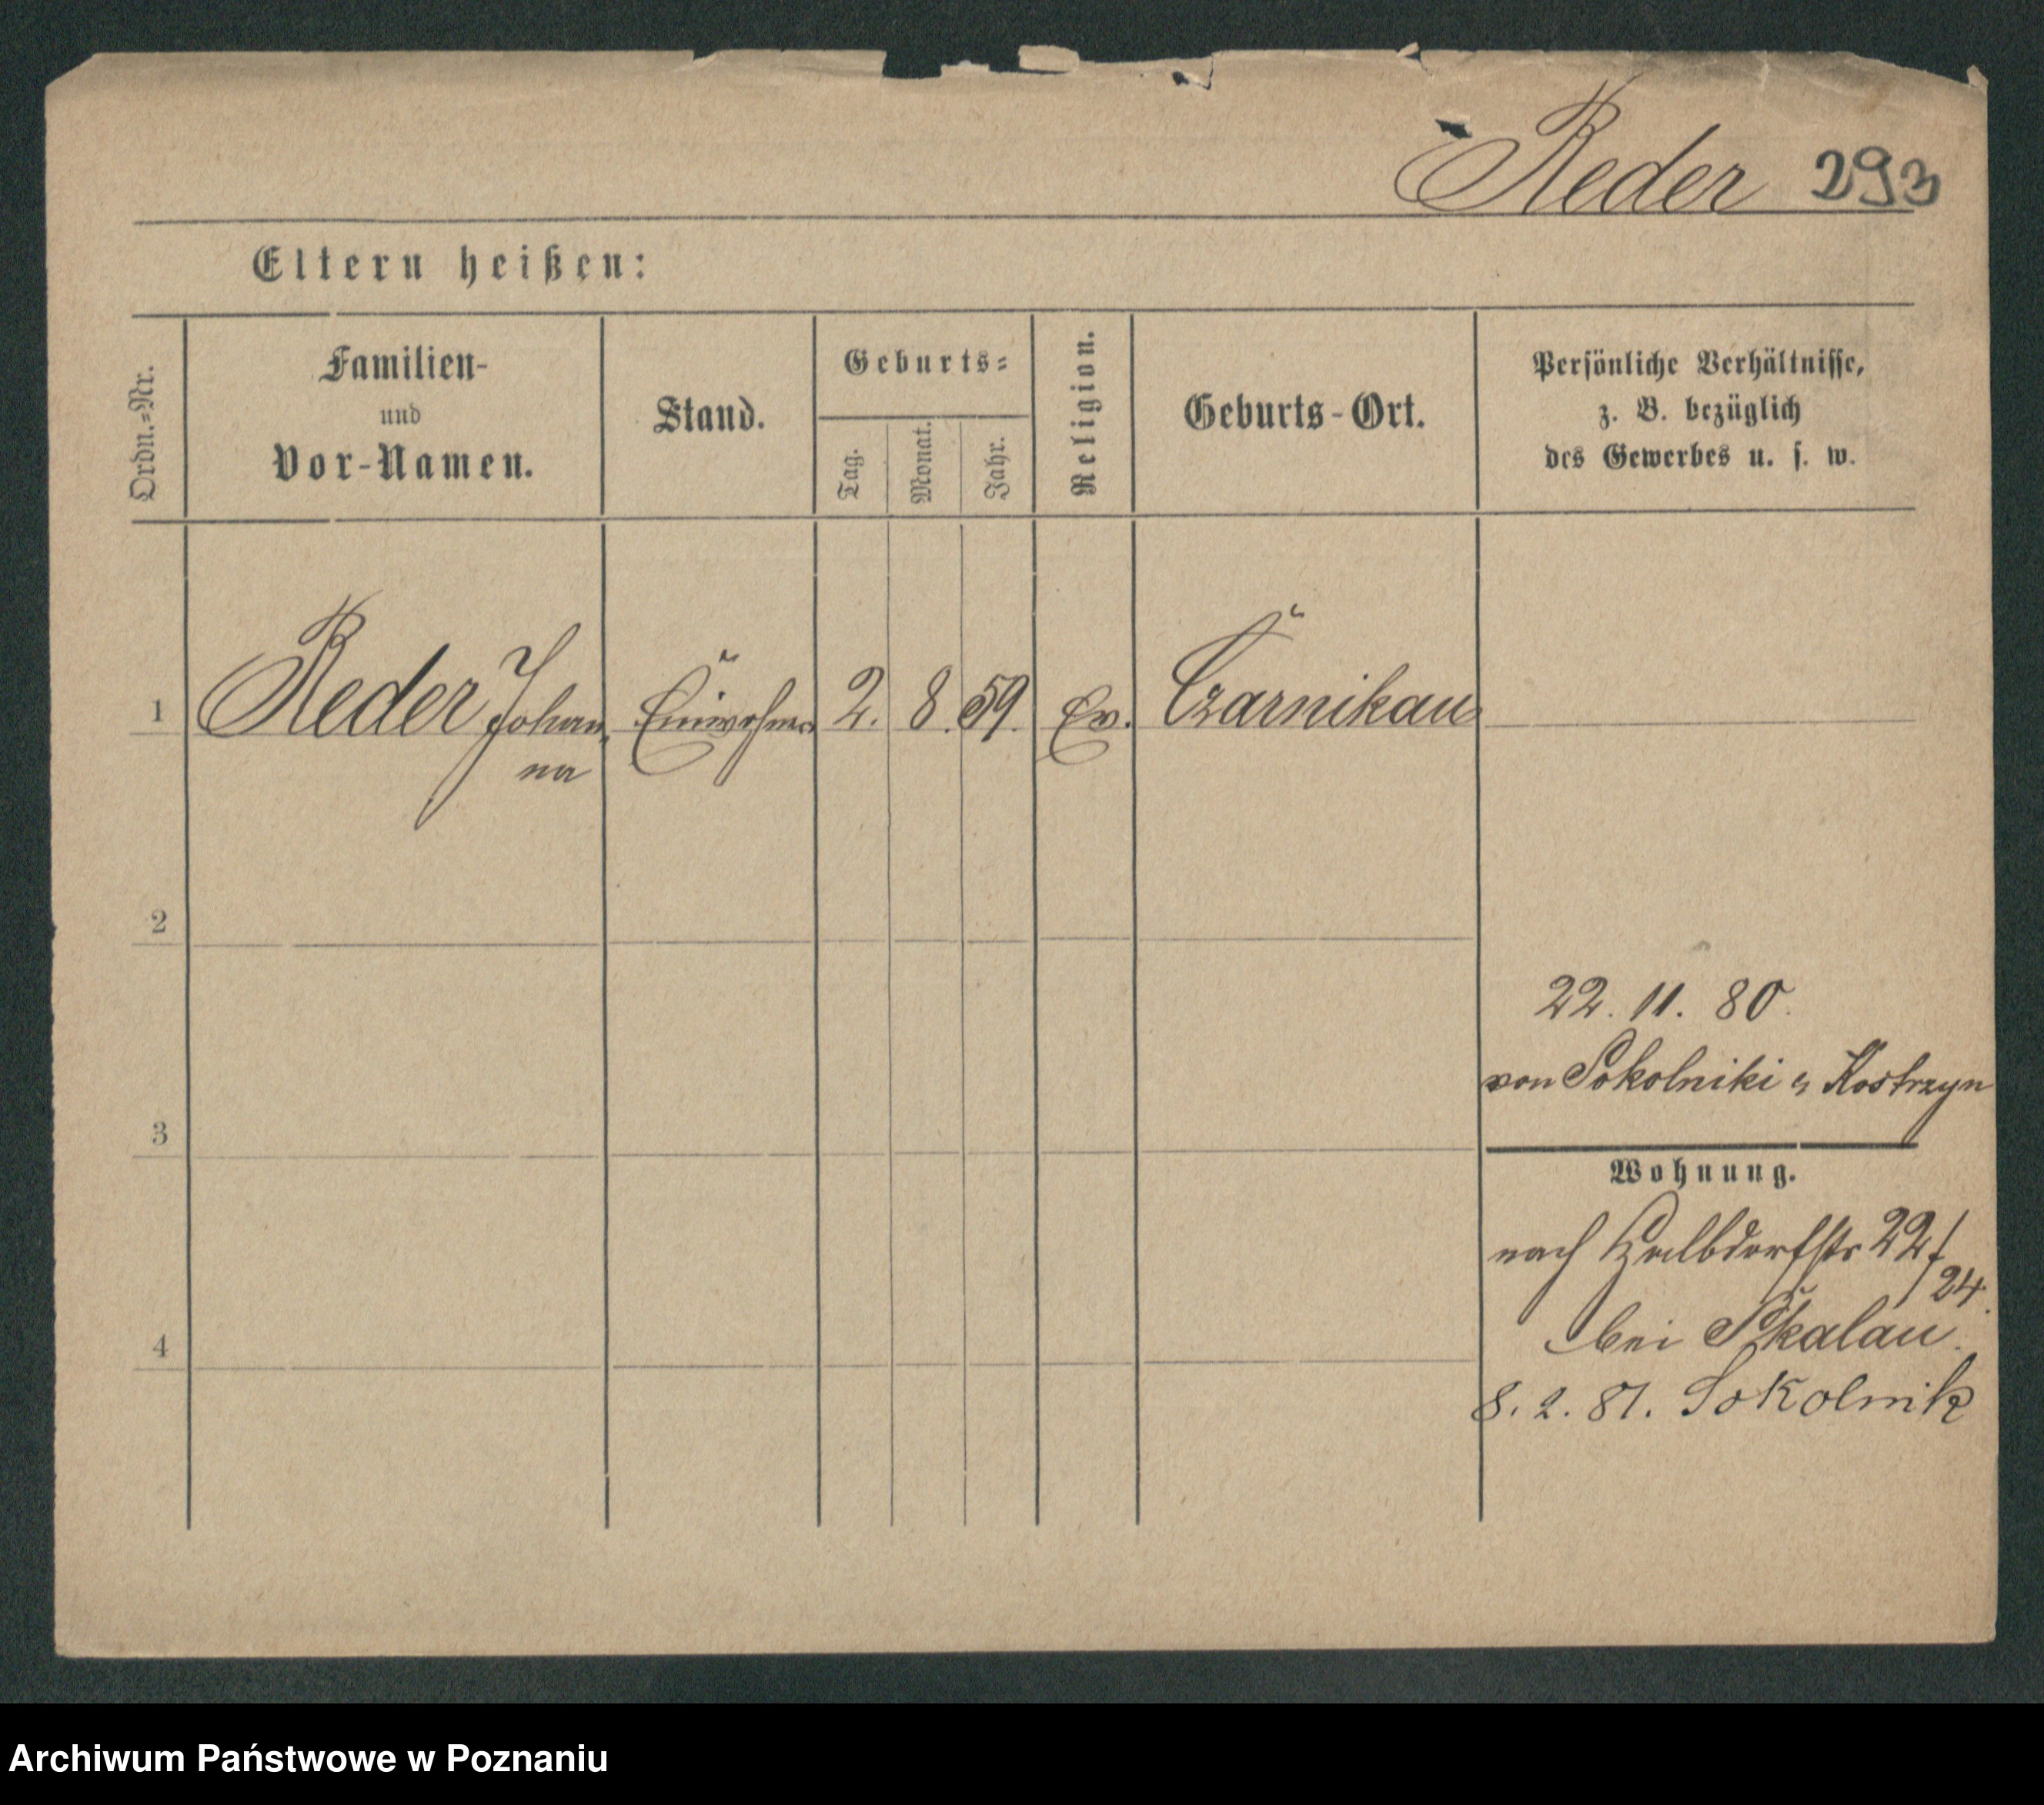 Reder 293
Eltern heißen:
Ordn.=Nr.
Familien-
und
Vor-Namen.
Stand.
Geburts=
Tag.
Monat.
Jahr.
Religion.
Geburts-Ort.
Persönliche Verhältnisse,
z. B. bezüglich
des Gewerbes u. s. w.
1 Reder Johan- 2. 8. 59. Ev. Czarnikau
na
2
22. 11. 80.
von Sokolniki Kostrzyn
3
Wohnung.
nach Halbdorfstr 22/
24.
bei Skalau.
4
8. 2. 81. Sokolnik
Archiwum Państwowe w Poznaniu